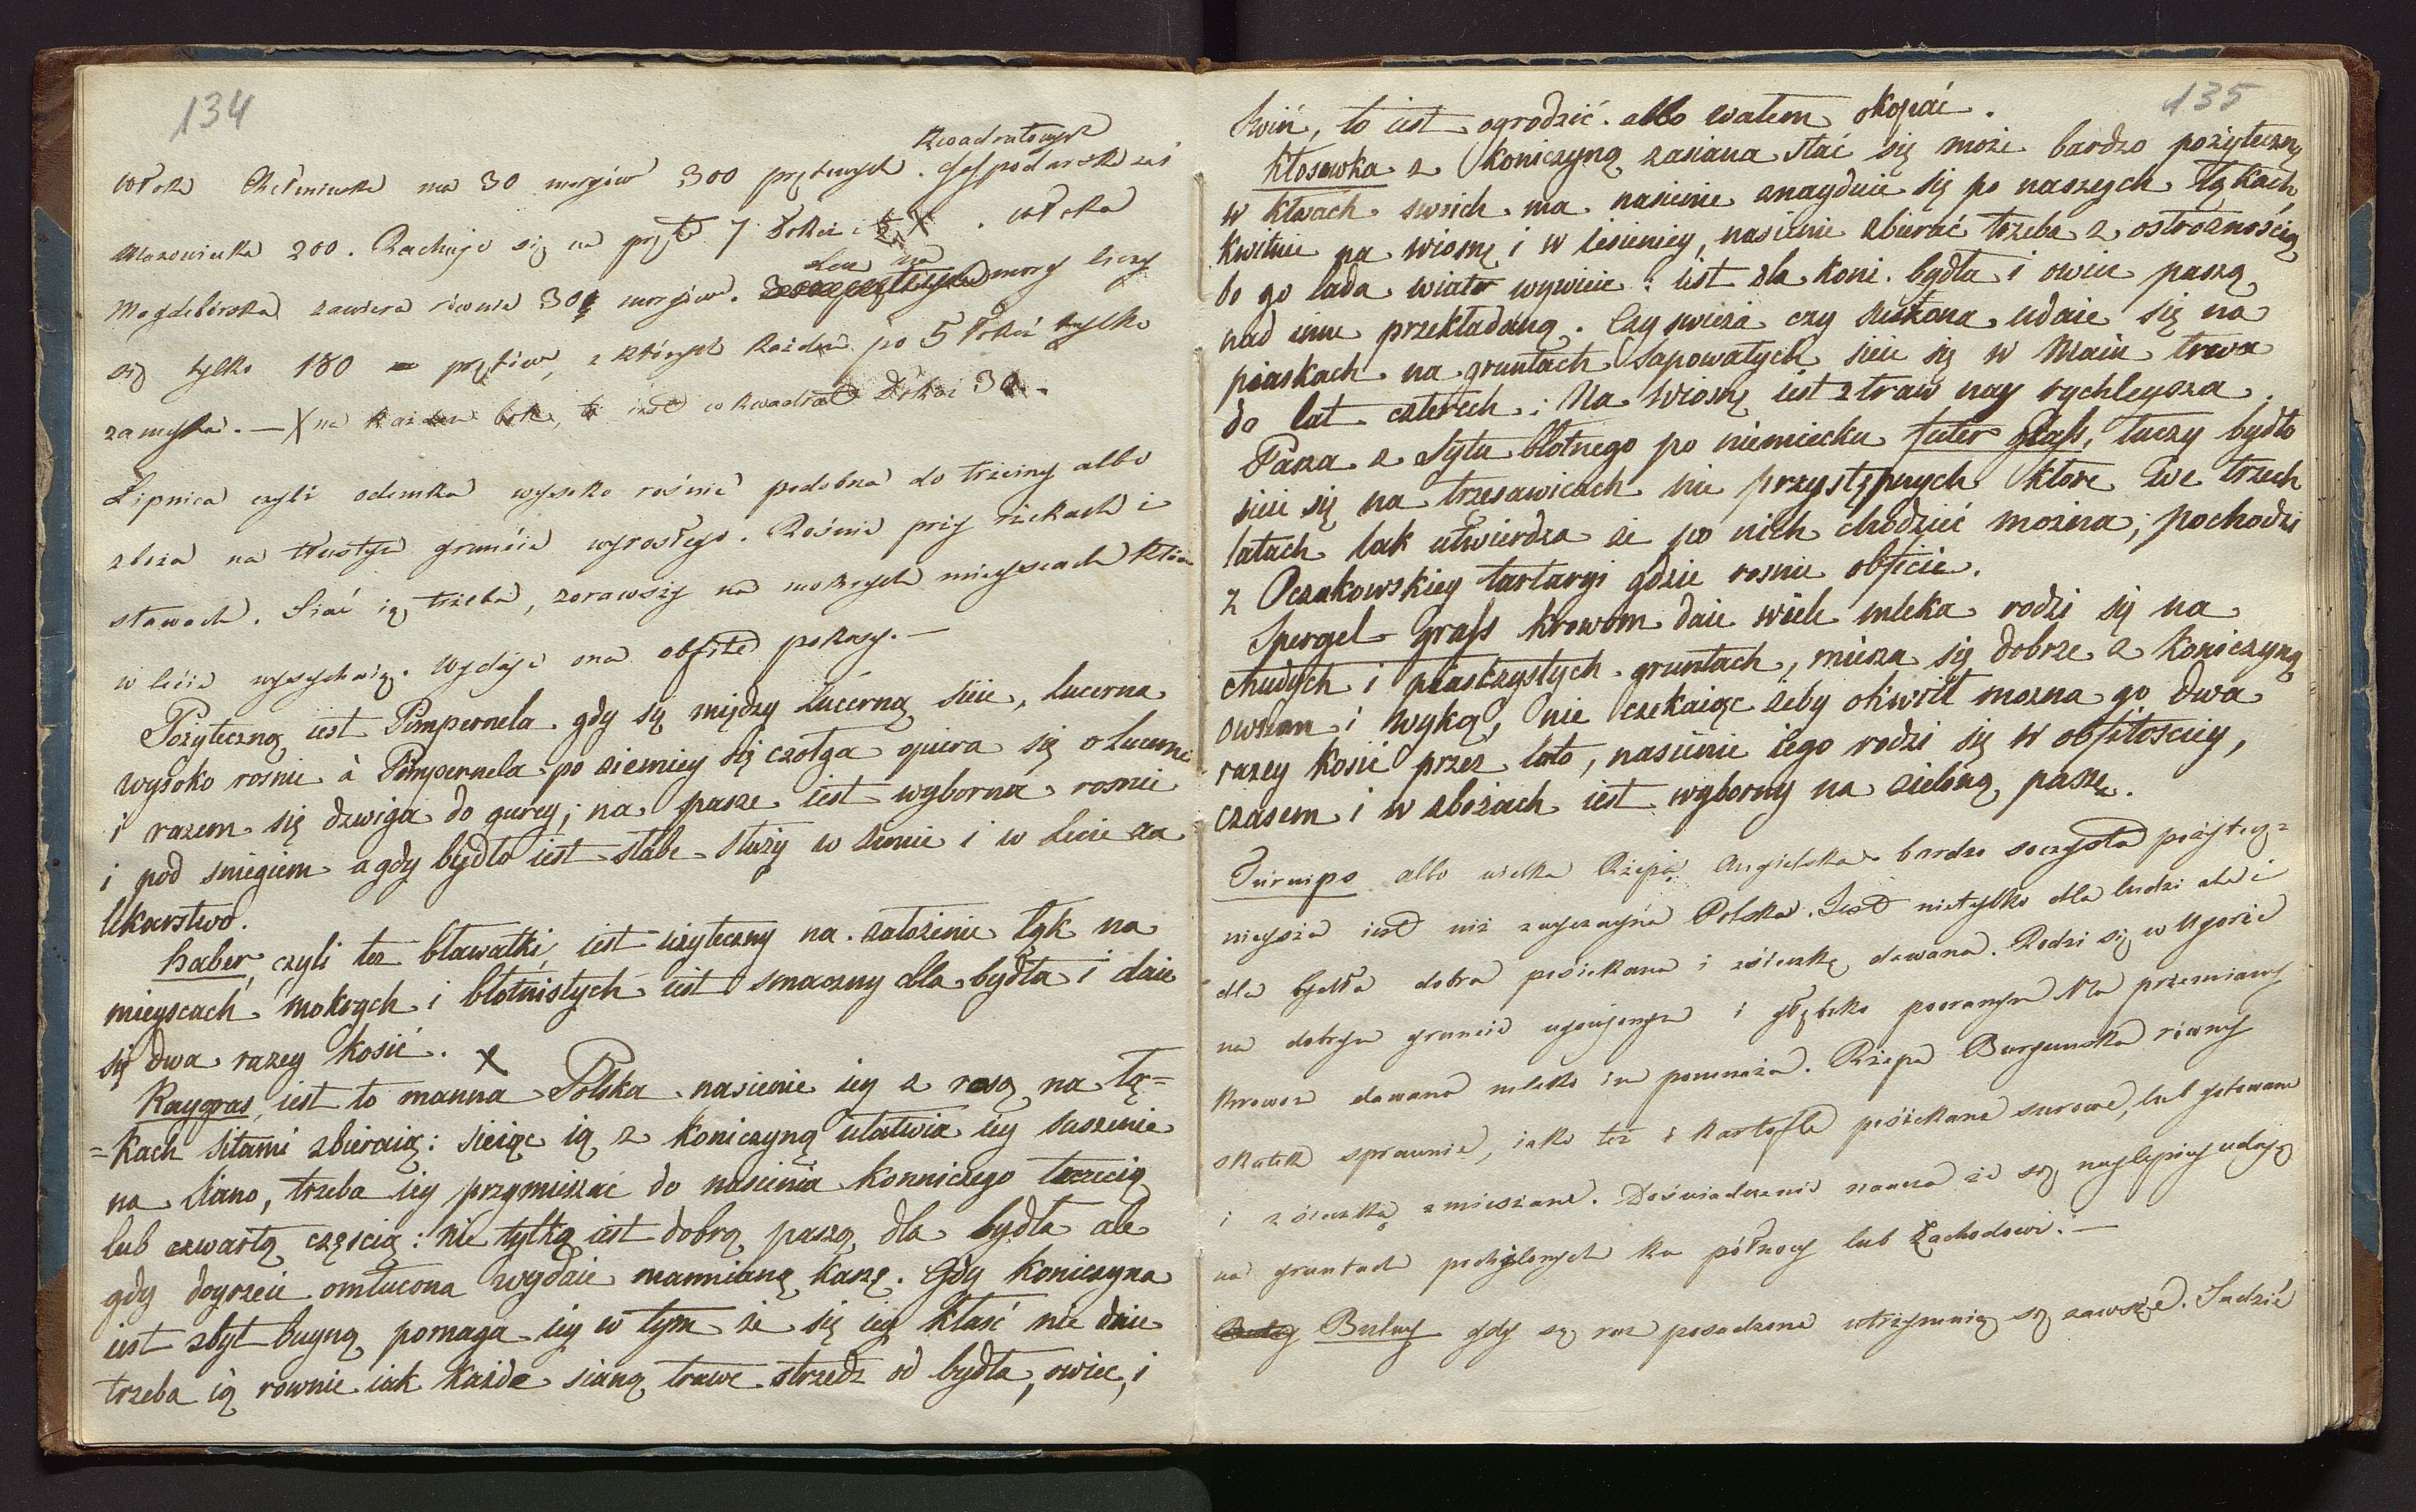 134
kwadratowych
włoka Chełmińska ma 30 morgów 300 prętowych. Gospodarska zaś
Mazowiecka 200. Rachuje się na pręt 7 łokci i ½ X. włoka
Magdeburska zawiera równie 30 morgów. lecz na morg liczy
się tylko 180 prętów, z których każden po 5 łokci tylko
zamyka. — X na każden bok, to iest w kwadrat łokci 30. —
Lipnica czyli odemka wysoko rośnie podobna do trzciny albo
zboża na tłustym gruncie wyrosłego. Rośnie przy rzekach i
stawach. Siać ią trzeba, zorawszy na mokrych mieyscach które
w lecie wysychaią. Wydaje ona obfite pokosy. —
Pożyteczną iest Pimpernela gdy się między lucerną sieie, lucerna
wysoko rosnie à Pimpernela po ziemiey się czołga opiera się o lucerne
i razem się dzwiga do gurey; na pasze iest wyborna rosnie
i pod sniegiem a gdy bydło iest słabe służy w zimie i w lecie za
lekarstwo.
haber, czyli tez bławatki, iest użyteczny na założenie łąk na
mieyscach mokrych i błotnistych iest smaczny dla bydła i daie
się dwa razey kosić. X
Raygras, iest to manna Polska nasienie iey z rosą na łą=
=kach sitami zbieraią: sieiąc ią z koniczyną ułatwia iey suszenie
na siano, trzeba iey przymieszać do nasienia konniczego trzecią
lub czwartą częscią: nie tylką iest dobrą paszą dla bydła ale
gdy doyrzeie omłucona wydaie mannianą kaszę. Gdy koniczyna
iest zbyt buyną pomaga iey w tym ze się iey kłaść nie daie
trzeba ią rownie iak każde sianą trawe strzedz od bydła, owiec, i
135
swiń, to iest ogrodzić albo wałem okopać.
Kłosowka z koniczyną zasiana stać się może bardzo pożyteczną
w kłosach swoich ma nasienie znayduie się po naszych łąkach,
kwitnie na wiosnę i w iesieniey, nasienie zbierać trzeba z ostroznością
bo go lada wiatr wywieie: iest dla koni bydła i owiec paszą
nad inne przekładaną. Czy swieża czy suszona udaie się na
piaskach na gruntach sapowatych sieie się w Maiu trwa
do lat czterech: Na wiosnę iest z traw nay rychleysza.
Pasza z sytu błotnego po niemiecku futer Graſs, tuczy bydło
sieie się na trzesawicach nie przystępnych ktore we trzech
latach tak utwierdza ze po nich chodzić mozna; pochodzi
z Oczakowskiey tartaryi gdzie rosnie obficie.
Spergel Graſs krowom daie wiele mleka rodzi się na
chudych i piasczystych gruntach, miesza się dobrze z koniczyną
owsem i wyką, nie czekaiąc żeby okwitł mozna go dwa
razey kosić przez lato, nasienie iego rodzi się w obfitosciey,
czasem i w zbożach iest wyborny na zieloną paszę.
Turnips albo wielka Rzepa Angielska bardzo soczysta pożytecz=
nieysza iest niż zwyczayna Polska. Iest nietylko dla ludzi ale i
dla bydła dobra posiekana i z sieczką dawana. Rodzi się w Ugorze
na dobrym gruncie ugnojonym i głęboko pooranym Na przemiany
krowom dawana mleko im pomnaża. Rzepa Burgunska rowny
skutek sprawnie, iako też i kartofle posiekane surowe, lub gotowane
i z sieczką zmieszane. Doświadczenie naucza że się naylepiey udają
na gruntach pochylonych ku północy lub Zachodowi. —
Bulwy gdy się raz posadzone utrzymuią się zawsze. Sadzić